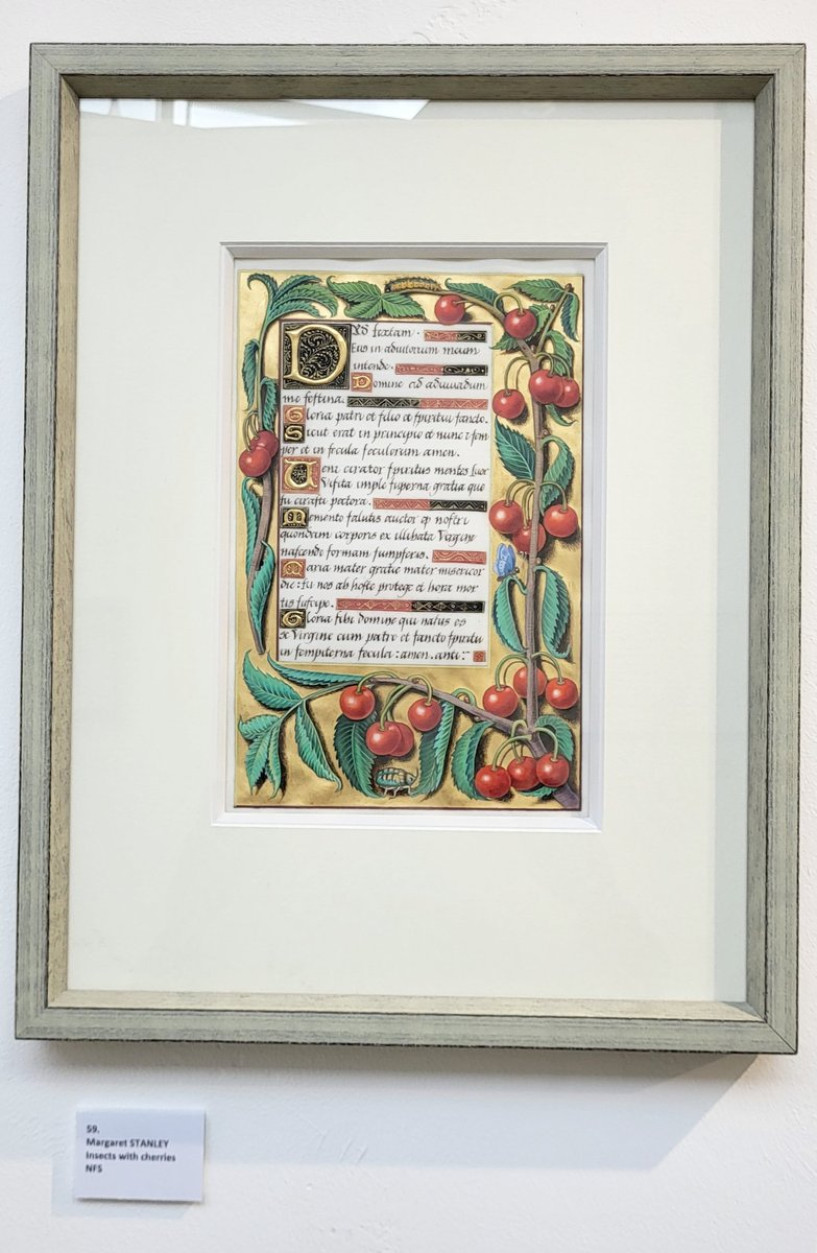 Ad sextam.
Deus in adiutorium meum
intende.
Domine ad adiuvadum
me festina.
Gloria patri et filio et spiritui sancto.
Sicut erat in principio et nunc & sem
per et in secula seculorum amen.
Veni creator spiritus mentes tuor
Visita imple superna gratia que
tu creasti pectora.
Memento salutis auctor qp nostri
quondam corporis ex illibata Virgine
nascendo formam sumpseris.
Maria mater gratie mater misericor
die: tu nos ab hoste protege et hora mor
tis suscipe.
Gloria tibi domine qui natus es
de Virgine cum patre et sancto spiritu
in sempiterna secula: amen. anti:
59.
Margaret STANLEY
Insects with cherries
NFS